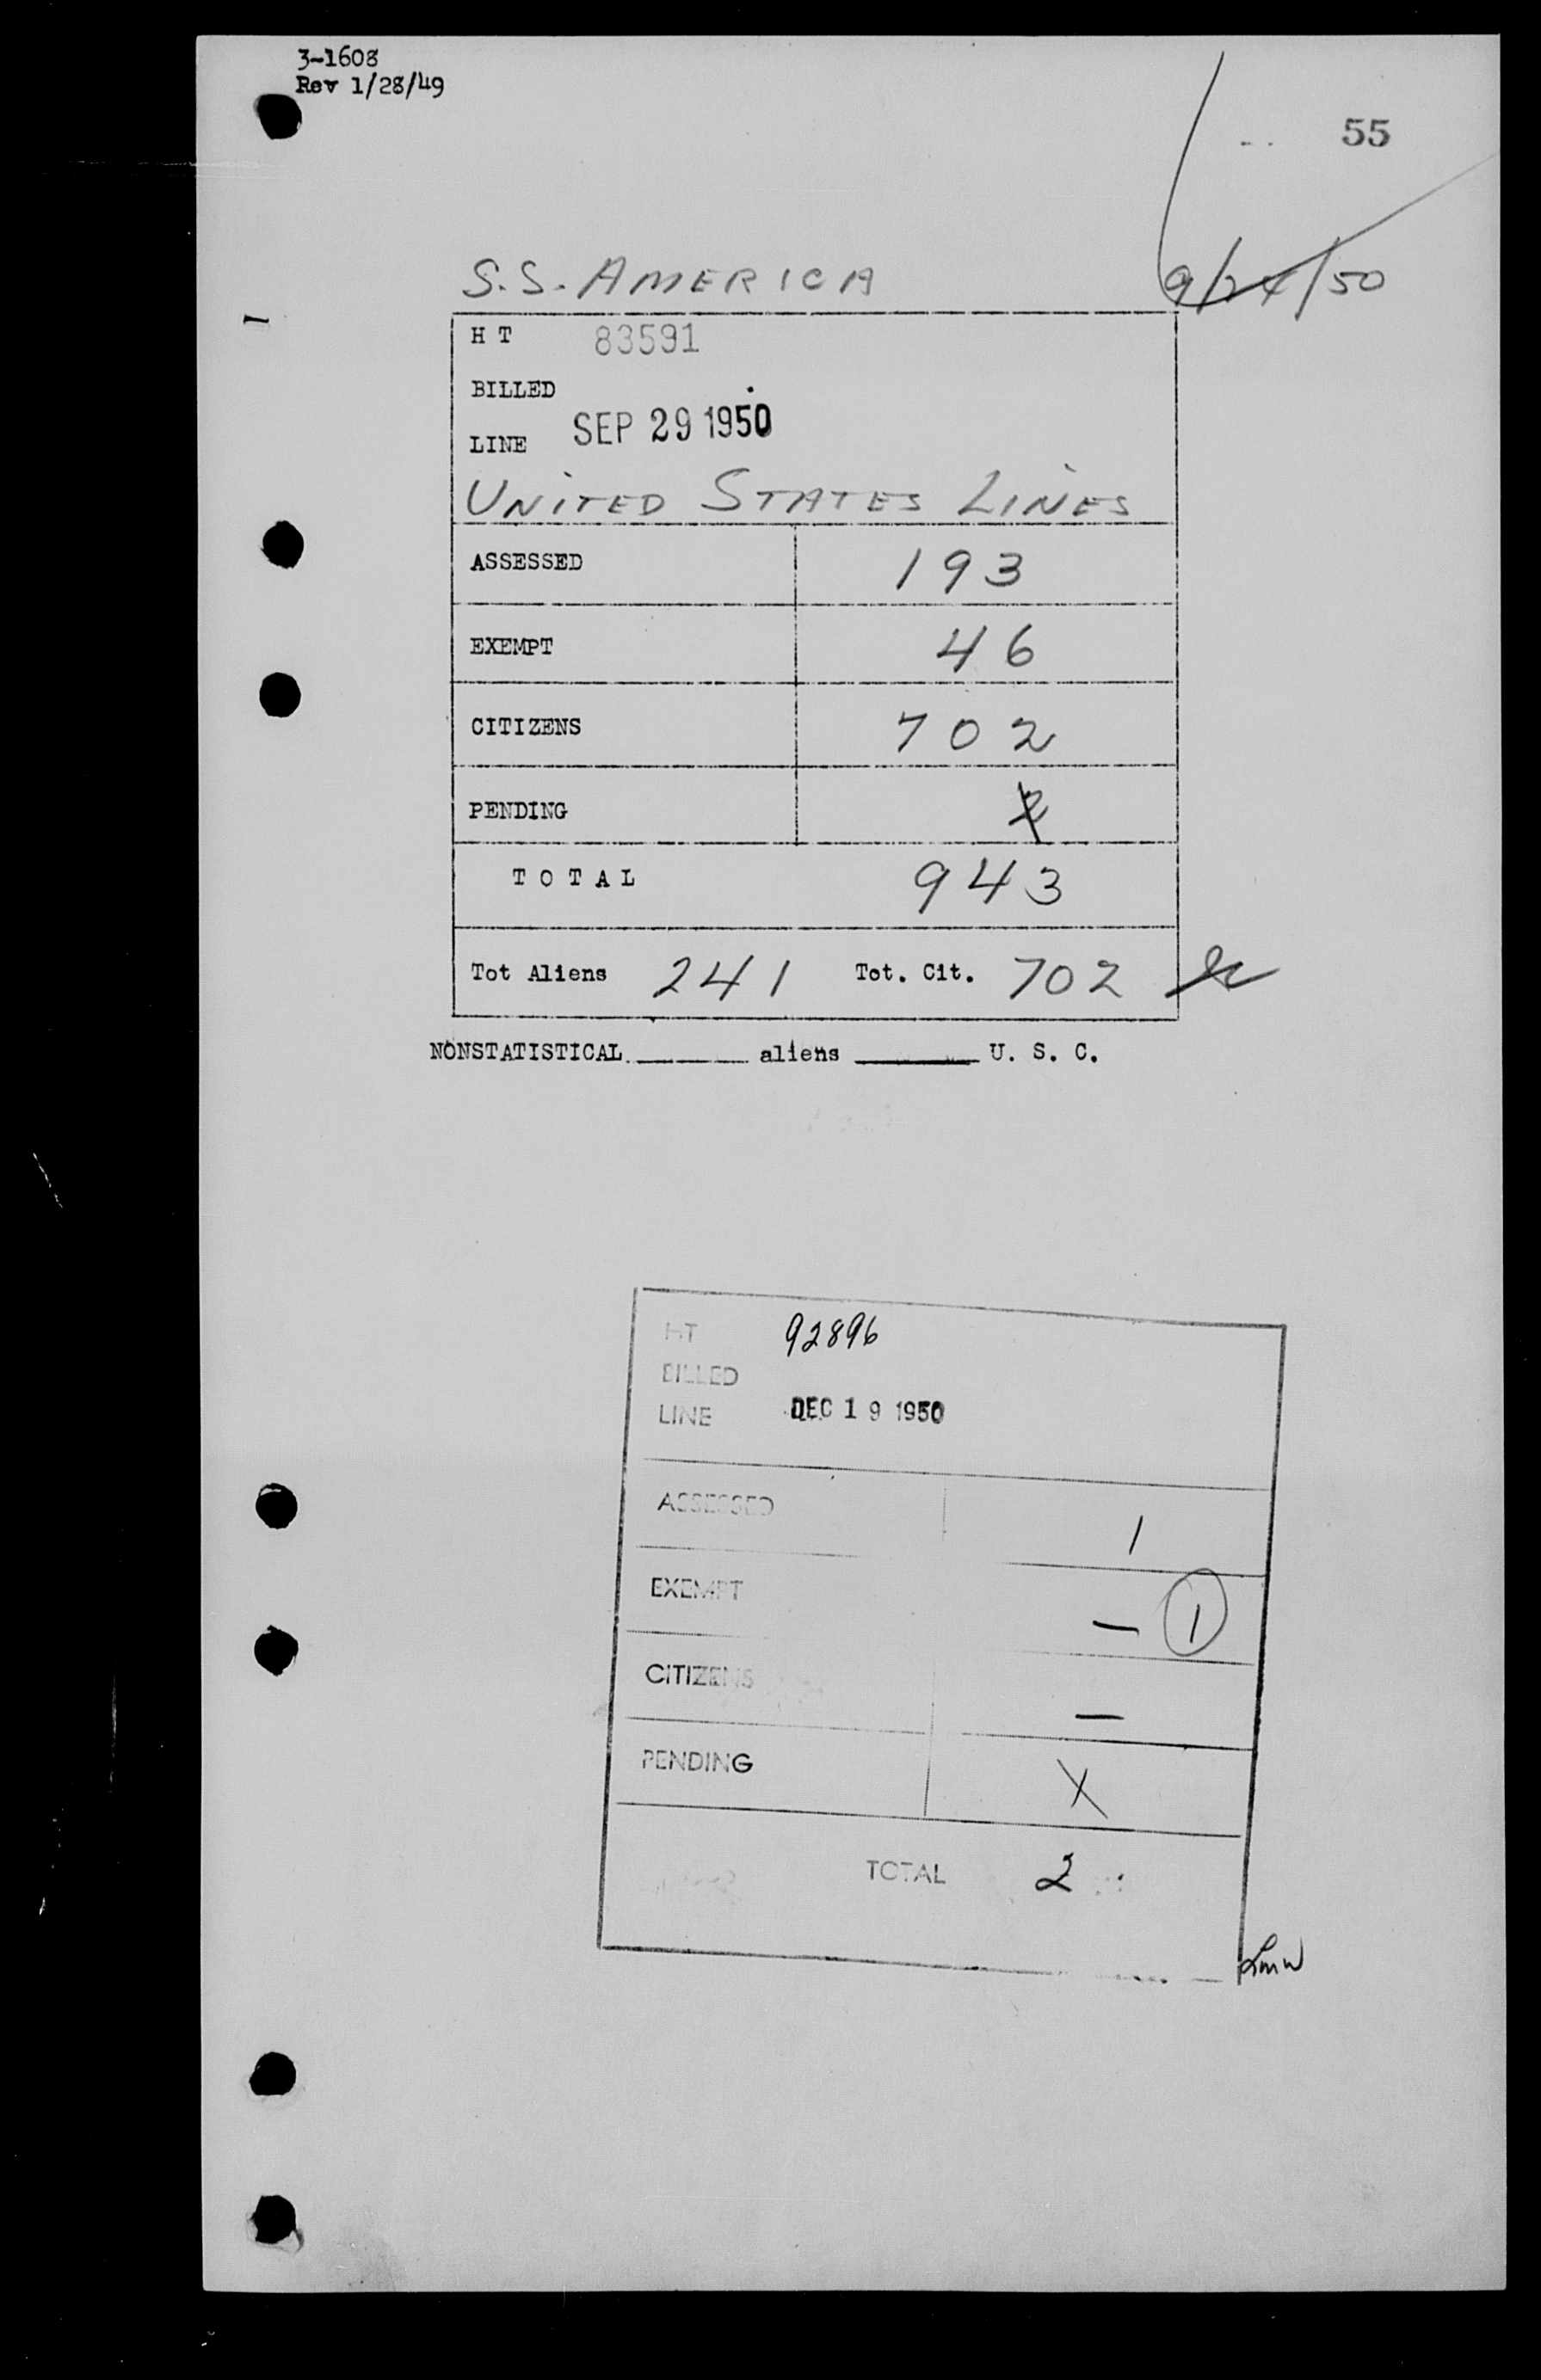 3-1608
Rev 1/28/49
55
S.S. AMERICA
9/24/50
H T 83591
BILLED
SEP 29 1950
LINE
UNITED STATES LINES
ASSESSED 193
EXEMPT 46
CITIZENS 702
PENDING 2
TOTAL 943
Tot Aliens 241 Tot. Cit. 702
NONSTATISTICAL aliens U. S. C.
HT 92896
BILLED
LINE DEC 19 1950
ASSESSED 1
EXEMPT — 1
CITIZENS —
PENDING X
TOTAL 2
LMW